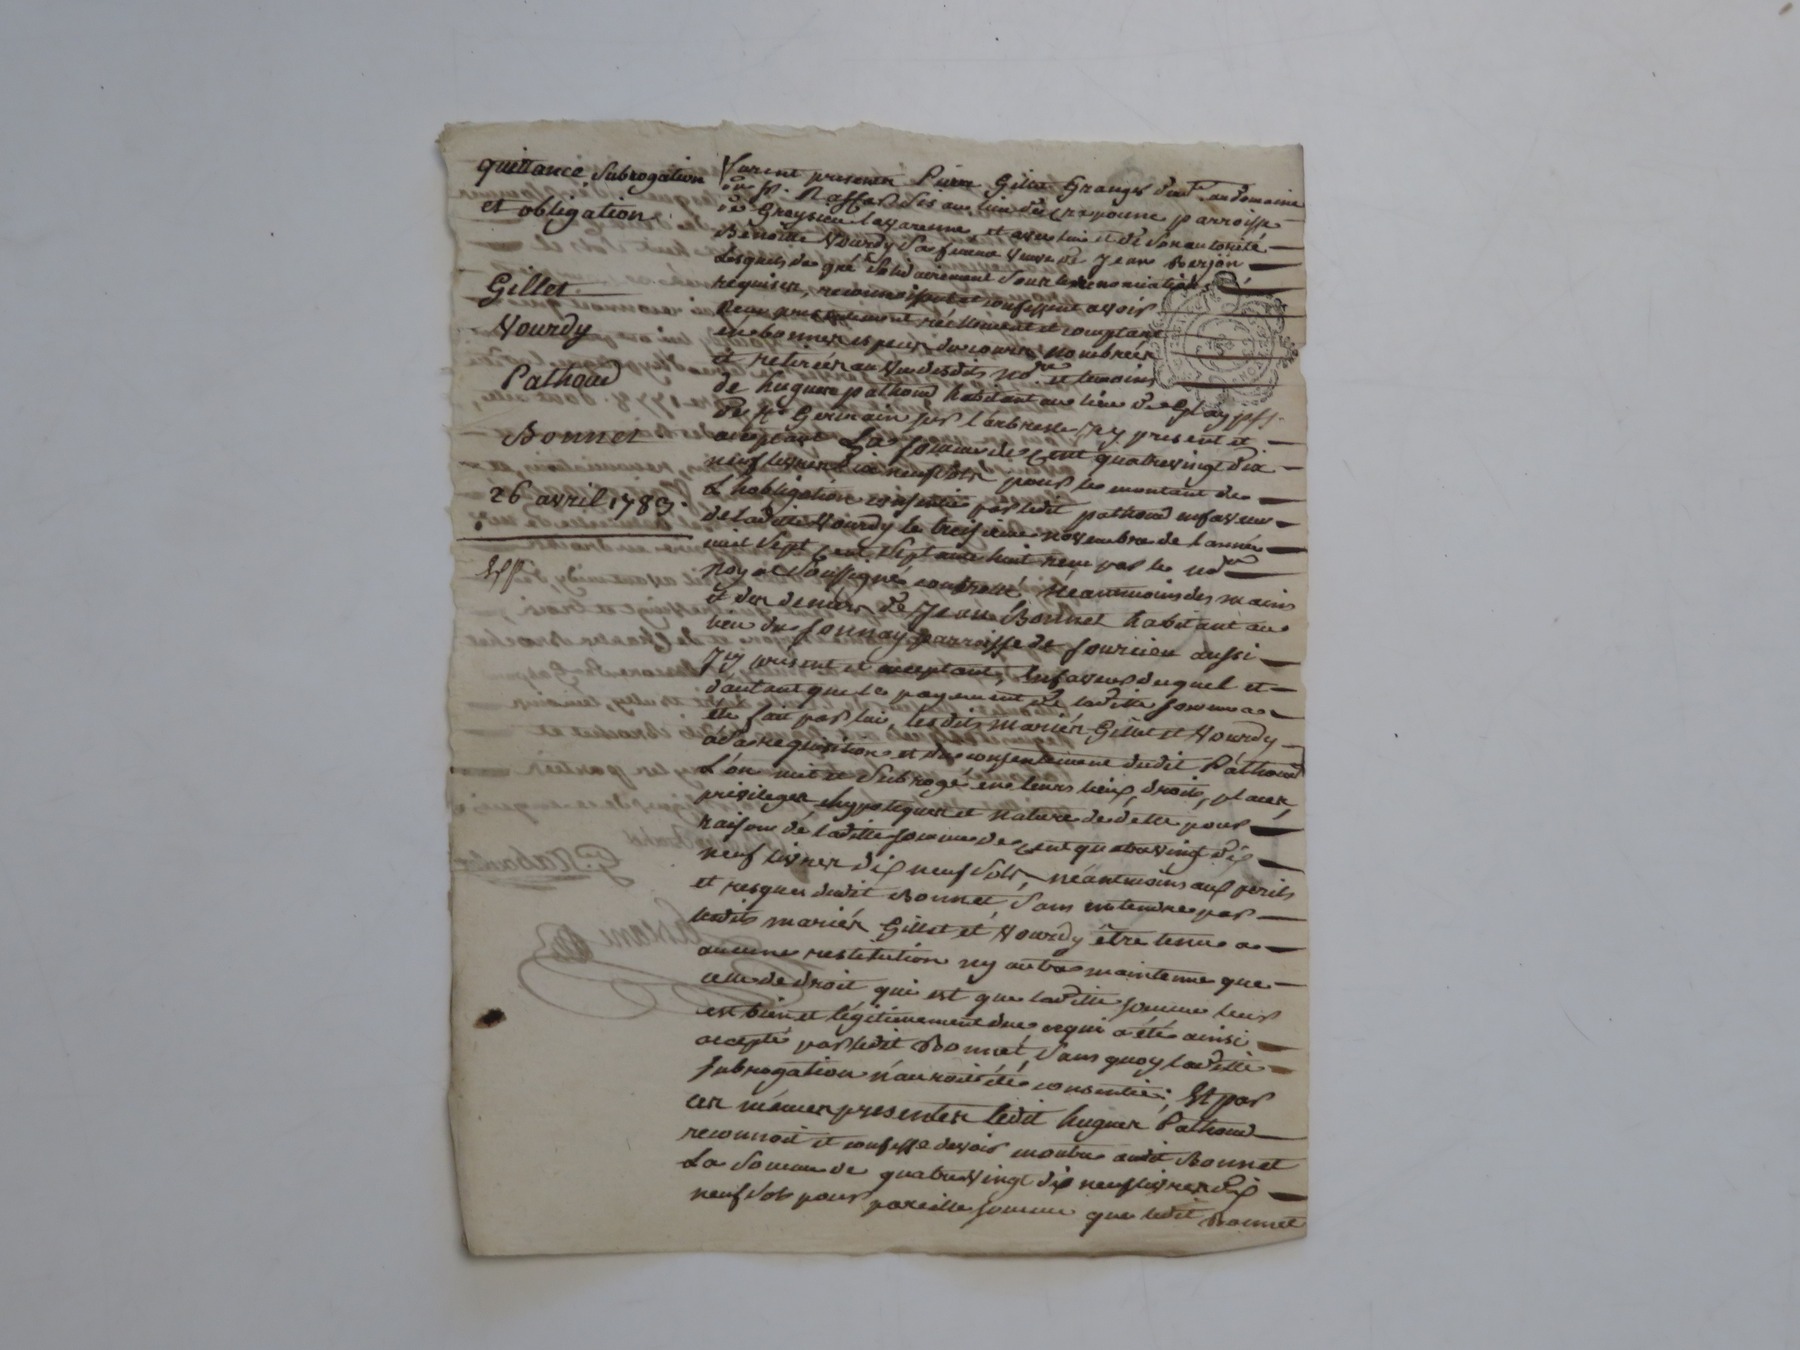 quittance, subrogation
et obligation
Gillet
Vourdy
Pathoud
Bonnet
26 avril 1783.
Exp.
Furent presents Pierre Gillet Granger du domaine
du Sr. Raffard sis au lieu de parroisse
de Greysieu lavarenne, et avec lui et de son autorité
Benoitte Vourdy sa femme veuve de Jean Berjon
lesquels de gré solidairement sous les renonciations
requises, reconnoissent et confessent avoir
reçu presentement réellement et comptant
en bonnes especes du cours nombrées
et retirées au vu desdits nore. et temoins
de hugues pathoud habitant au lieu de Glay psse.
de St. Germain sur Larbresle icy present et
acceptant La somme de cent quatrevingt dix
neuf livres dix neuf sols pour le montant de
L'hobligation consentie par ledit pathoud en faveur
de laditte Vourdy le treizieme novembre de l'année
mil sept cent septante huit reçue par le nore.
royal soussigné controlé Neanmoins des mains
et des deniers de Jean Bonnet habitant au
lieu de fonnay parroisse de sourcieu aussi
icy present et acceptant, En faveur duquel et
d'autant que le payement de laditte somme a
été fait par lui, lesdits mariés Gillet et Vourdy
à sa requisition et du consentement dudit Pathoud
L'on mit et subrogé en leurs lieux, droits, places,
privileges, hypoteques et nature de dette pour
raison de laditte somme de cent quatrevingt dix
neuf livres dix neuf sols, néantmoins aux perils
et resques dudit Bonnet, sans entendre par
lesdits mariés Gillet et Vourdy être tenu a
aucune restitution ny autre maintenue que
celle de droit qui est que laditte somme leur
est bien et légitimement due, ce qui a été ainsi
accepté par ledit Bonnet, sans quoy laditte
subrogation n'auroit été consentie; Et par
ces mêmes presentes ledit hugues Pathoud
reconnoit et confesse devoir audit Bonnet
La somme de quatrevingt dix neuf livres dix
neuf sols pour pareille somme que ledit Bonnet